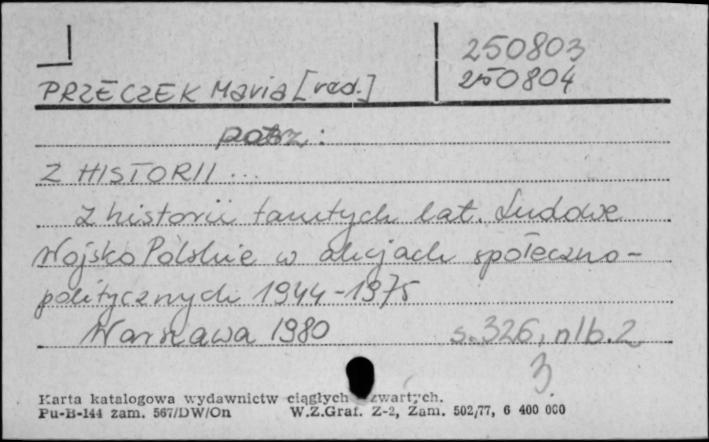 250803
250804
PRZECZEK Maria [red.]
patrz:
Z HISTORII ...
Z historii tamtych lat. Ludowe
Wojsko Polskie w akcjach społeczno-
politycznych 1944-1975
Warszawa 1980 s. 326, nlb. 2
3
Karta katalogowa wydawnictw ciągłych zwartych.
Pu-B-144 zam. 567/DW/On W.Z.Graf. Z-2, Zam. 502/77, 6 400 000